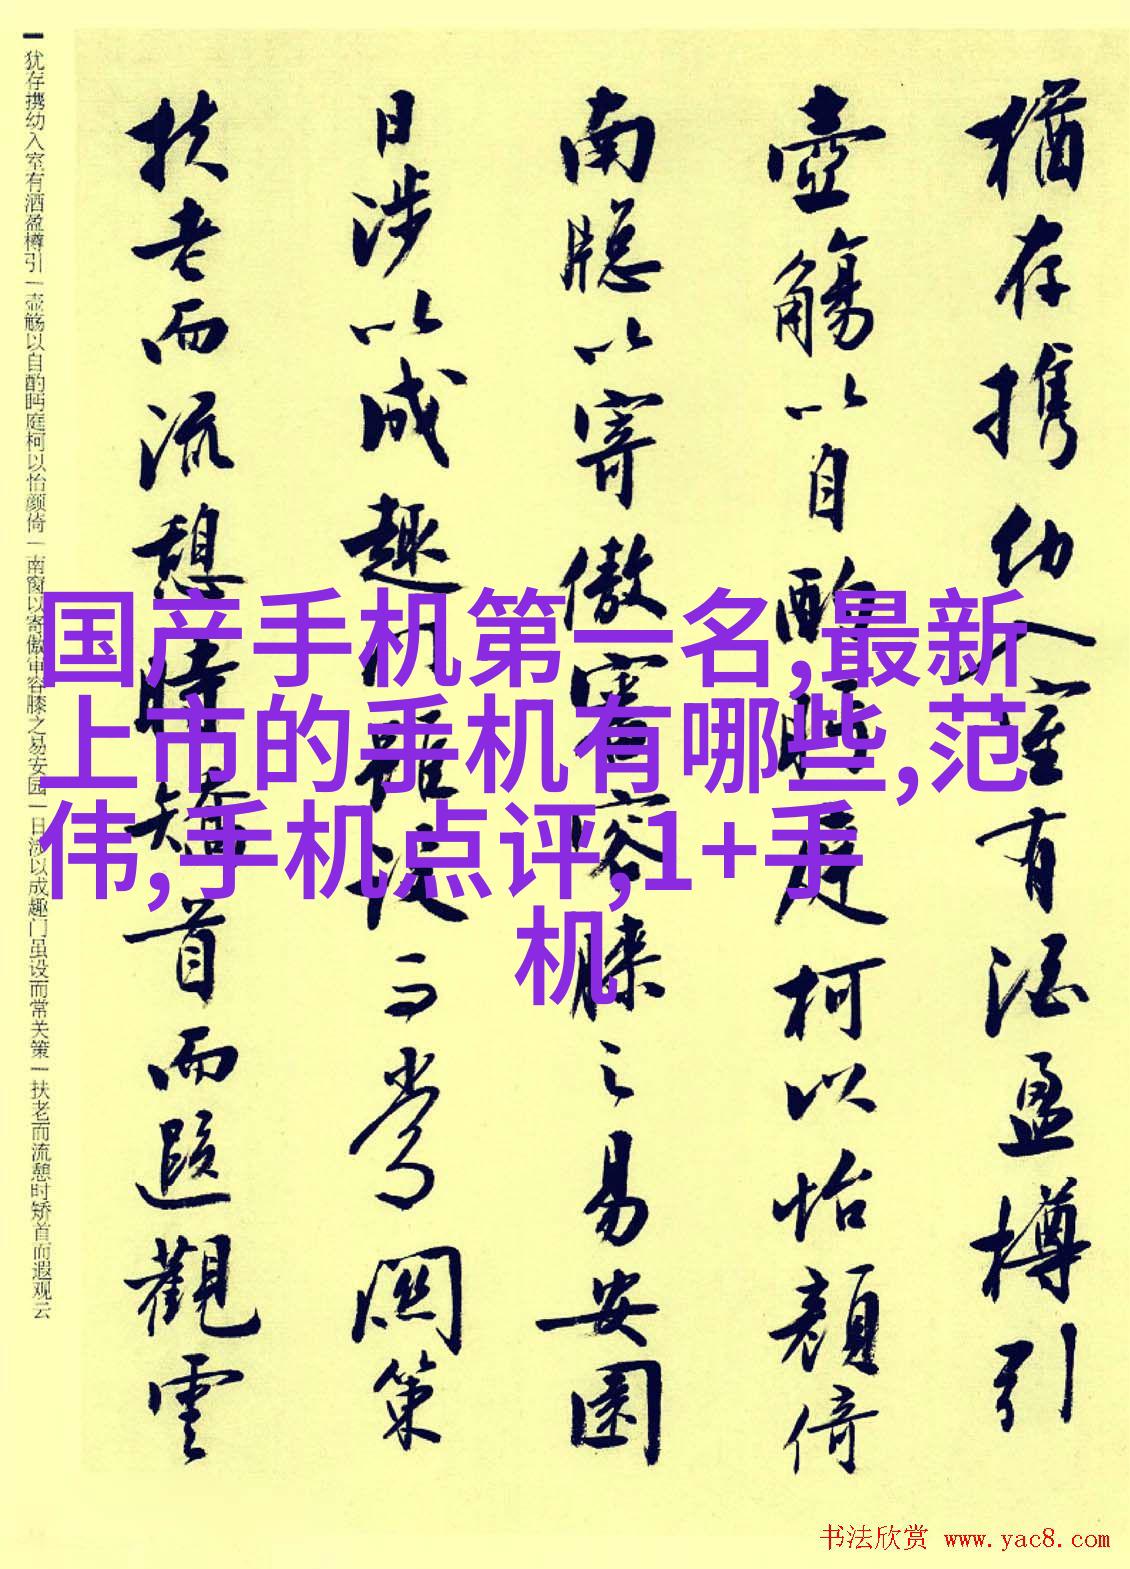 猶存携幼入室有酒盈樽引
壺觴以自酌眄庭柯以怡顔倚
南牕以寄傲審容膝之易安園
日涉以成趣門雖設而常関策
扶老而流憩時矯首而遐觀雲
犹存携幼入室有酒盈樽引|壶觞以自酌眄庭柯以怡颜倚|南窗以寄傲审容膝之易安园|日涉以成趣门虽设而常关策|扶老而流憩时矫首而遐观云
国产手机第一名,最新
上市的手机有哪些,范
伟,手机点评,1+手
机
书法欣赏 www.yac8.com